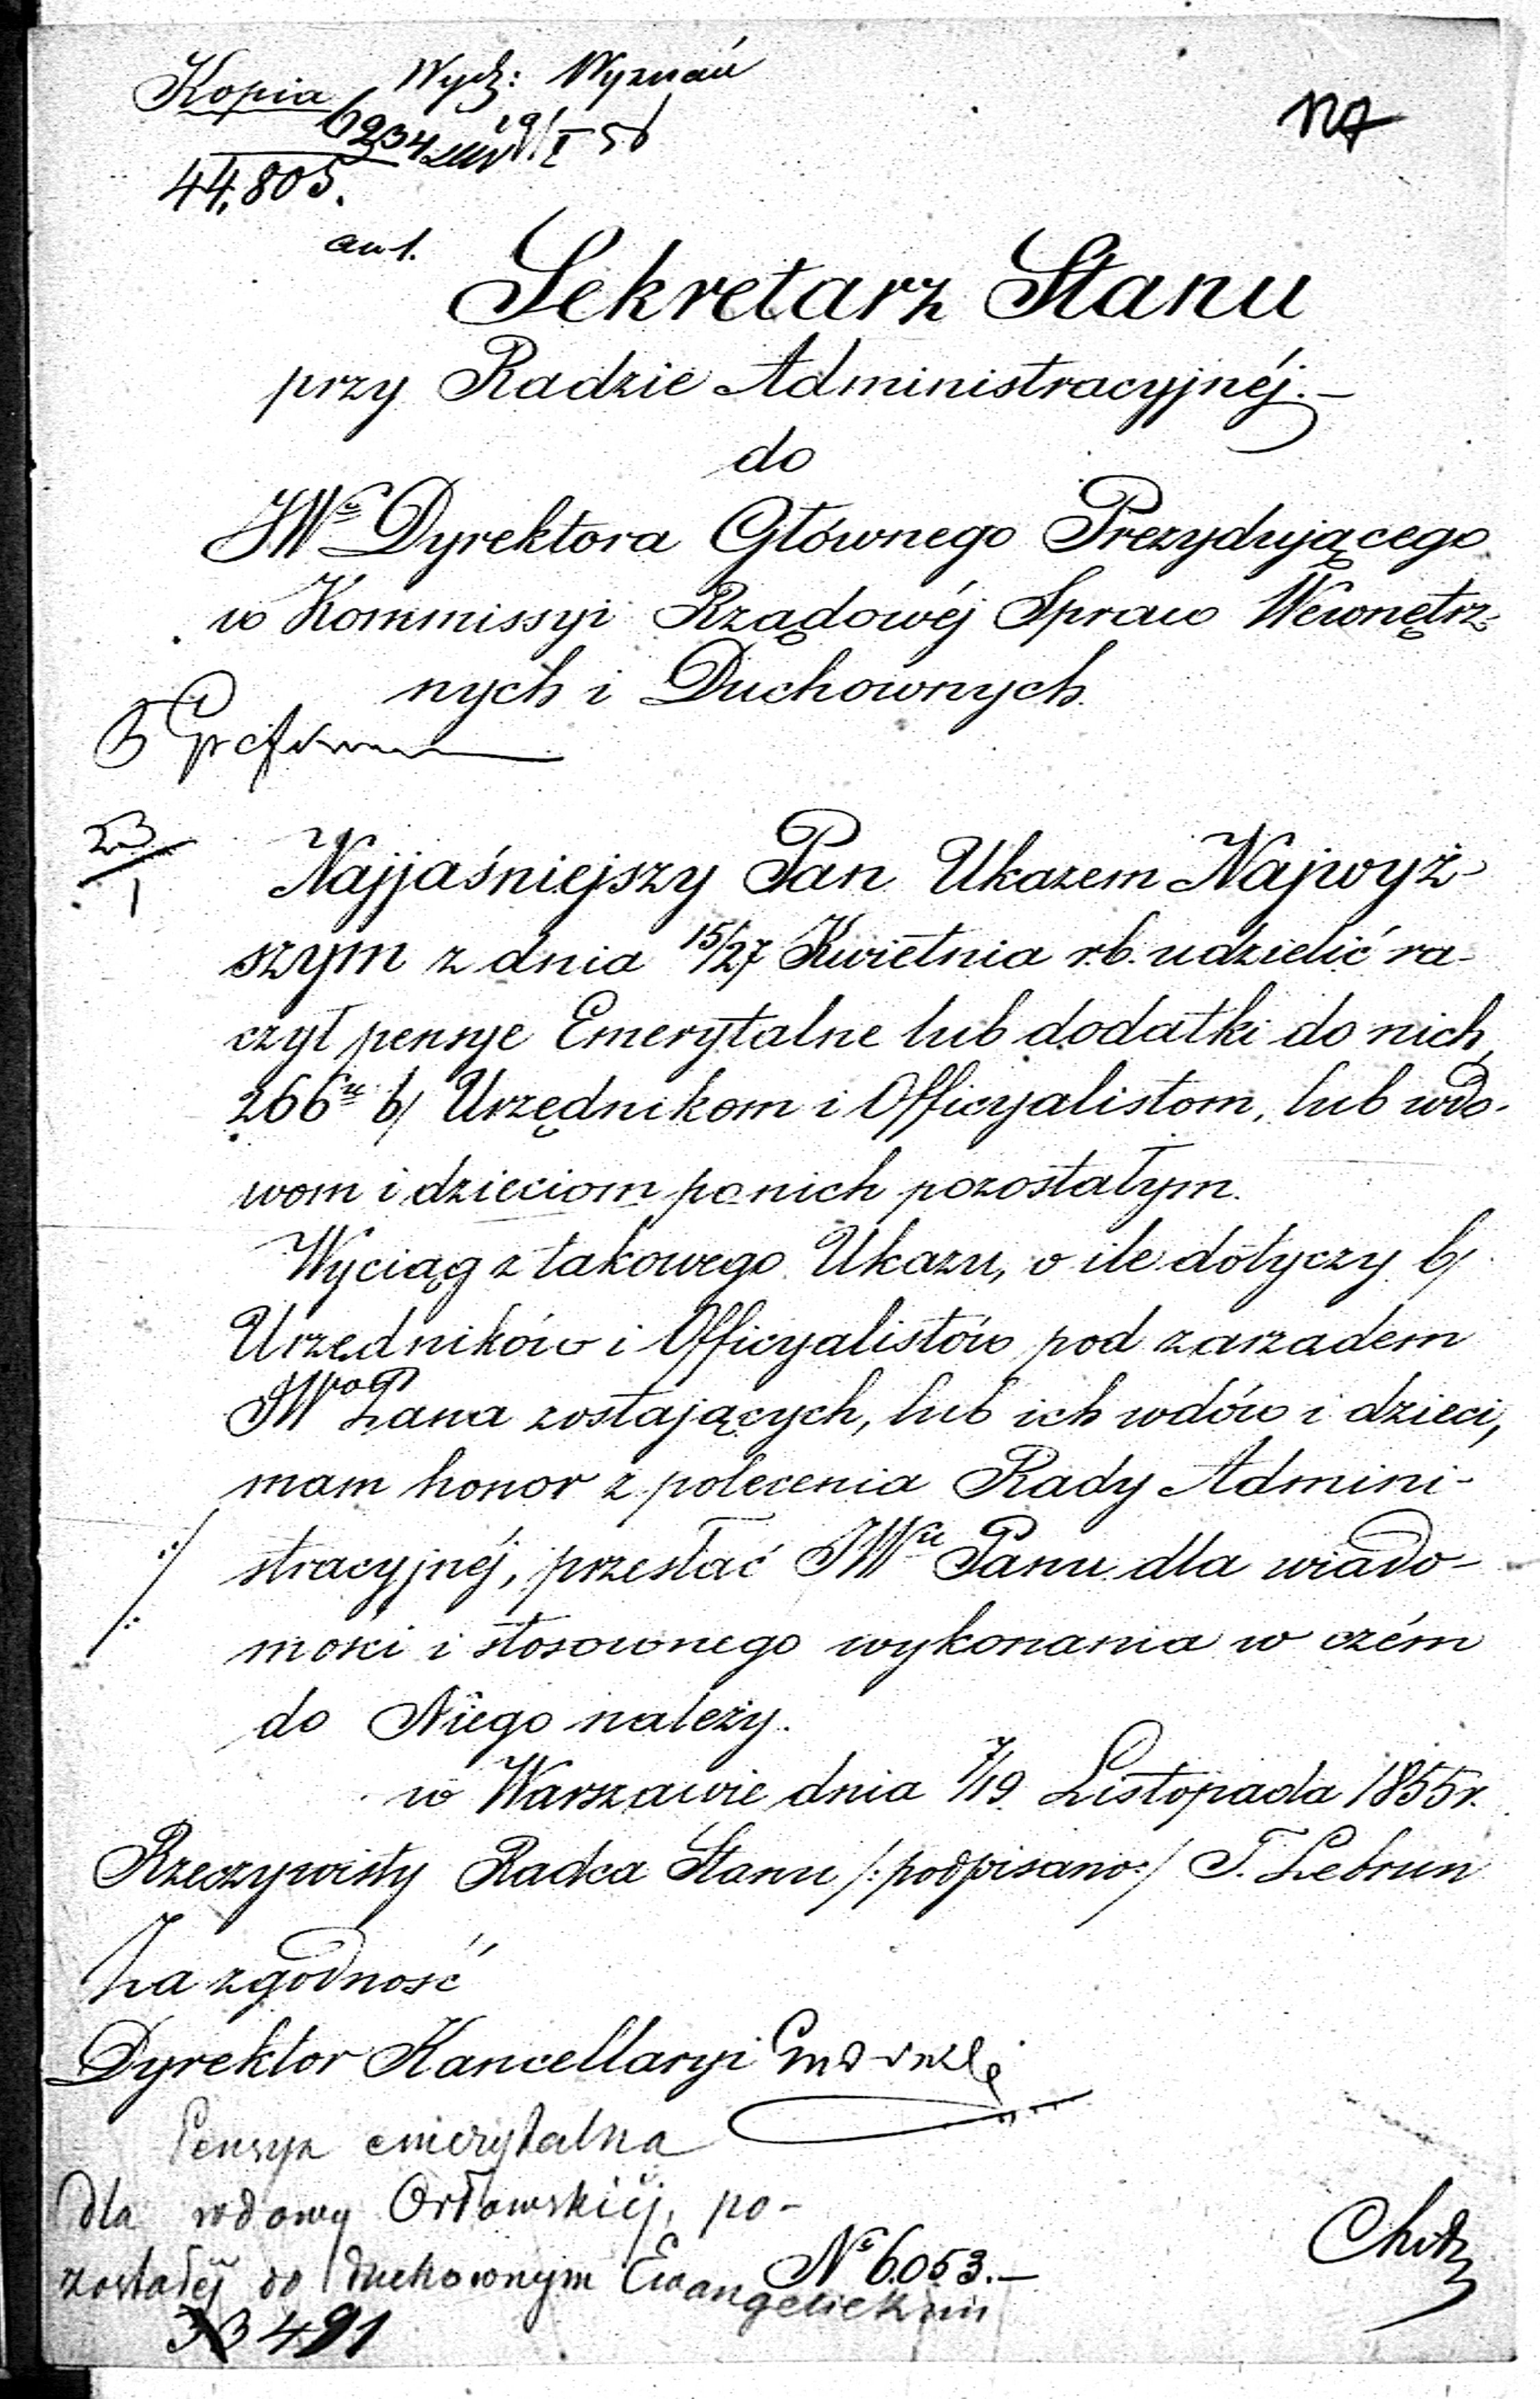 Kopia Wydz: Wyznań
6234 19/I 56
44,805.
127
Sekretarz Stanu
przy Radzie Administracyjnéj.–
do
JWº Dyrektora Głównego Prezydującego
w Kommissyi Rządowéj Spraw Wewnętrz-
nych i Duchownych.
23/1
Najjaśniejszy Pan Ukazem Najwyż-
szym z dnia 15/27 Kwietnia r.b. udzielić ra-
czył pensye Emerytalne lub dodatki do nich,
266u b/ Urzędnikom i Officyalistom, lub wdo-
wom i dzieciom po nich pozostałym.
Wyciąg z takowego Ukazu, o ile dotyczy b/
Urzędników i Officyalistów pod zarządem
JWgo Pana zostających, lub ich wdów i dzieci,
mam honor z polecenia Rady Admini-
stracyjnéj, przesłać JWu Panu dla wiado-
mości i stosownego wykonania w czém
do Niego należy.
w Warszawie dnia 7/19 Listopada 1855 r.
Rzeczywisty Radca Stanu /:podpisano:/ T. Lebrun
Za zgodność
Dyrektor Kancellaryi
Pensya emerytalna
dla wdowy Orłowskiéj, po-
zostałéj po duchownym Ewangelickim
Nº 6.053.–
33491